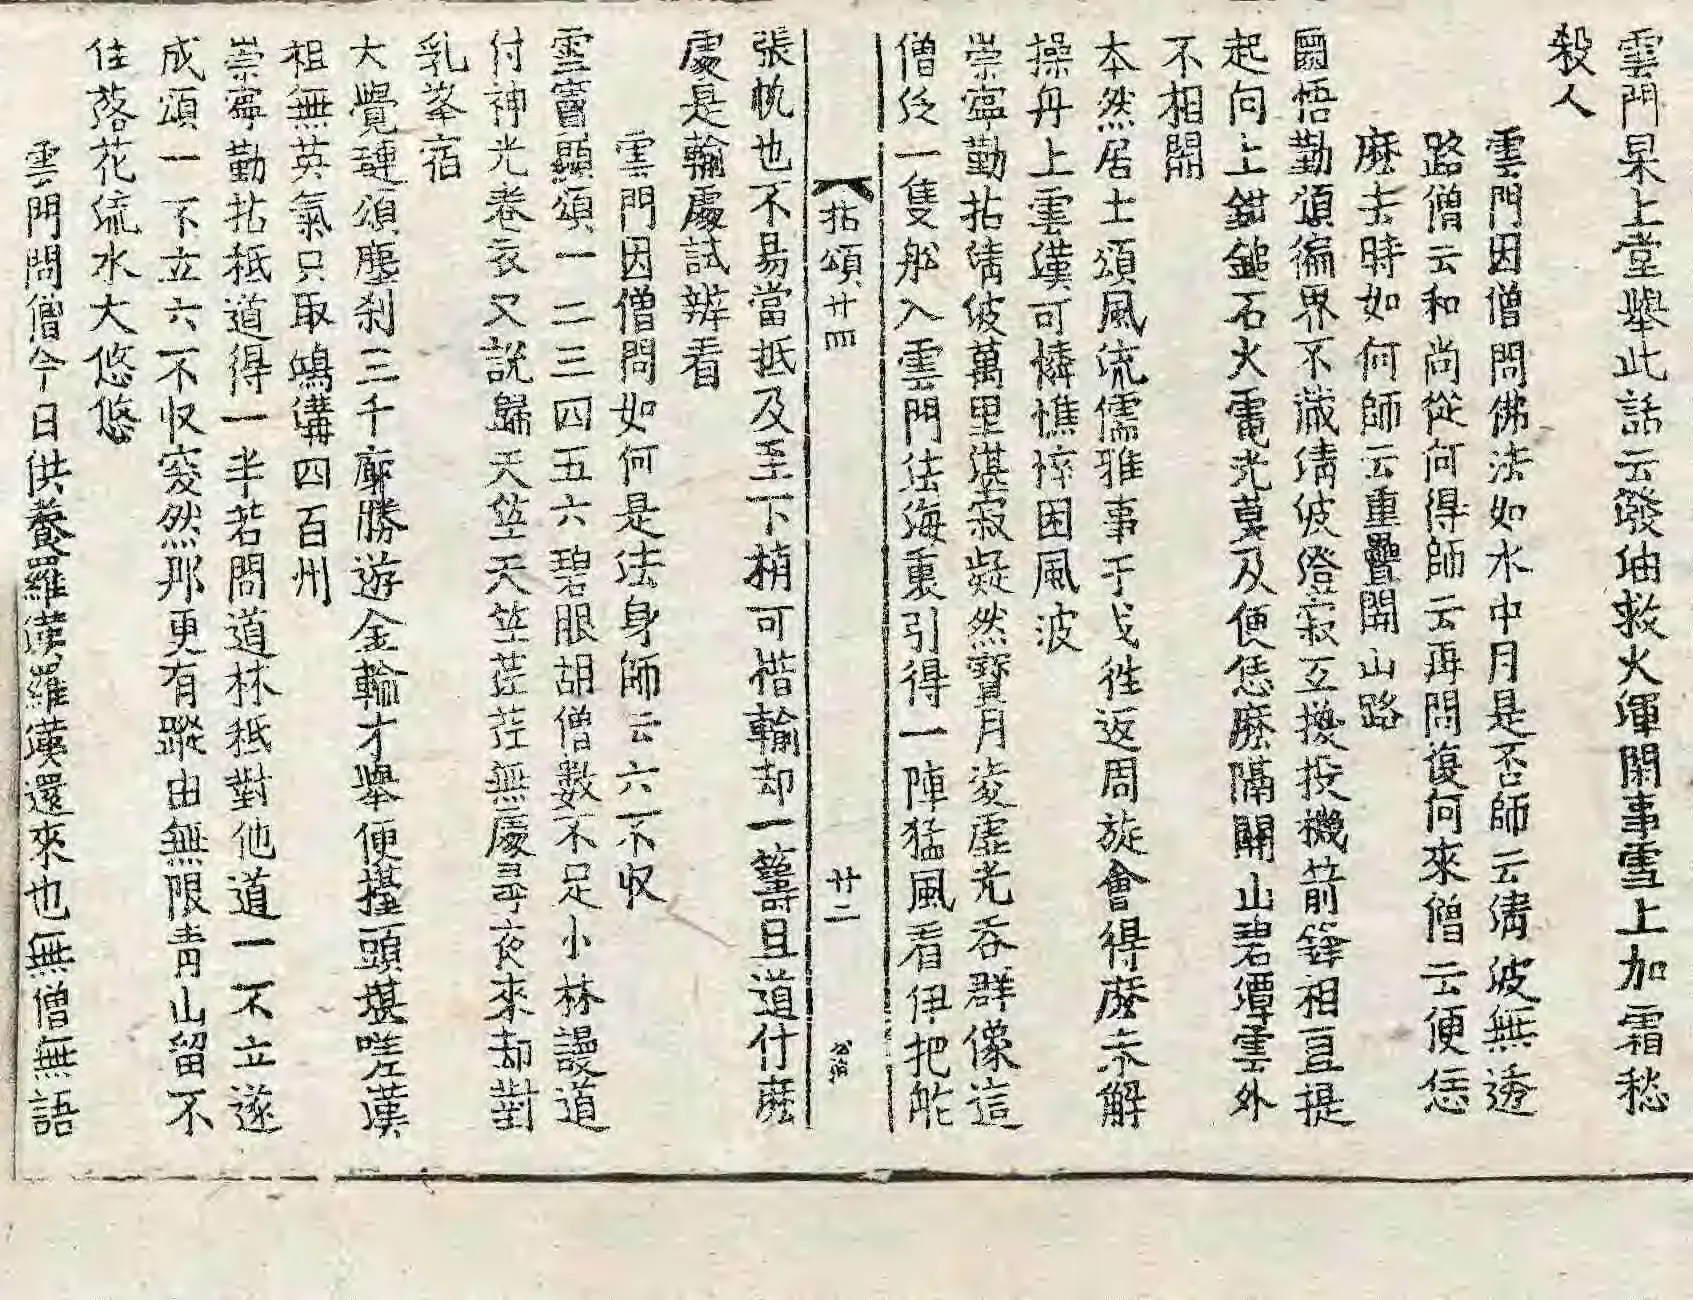 雲門杲上堂舉此話云潑油救火渾閑事雪上加霜愁
殺人
雲門因僧問佛法如水中月是否師云淸波無透
路僧云和尚從何得師云再問復何來僧云便恁
麽去時如何師云重疊關山路
圜悟勤頌徧界不藏淸波澄寂互換投機箭鋒相直提
起向上鉗鎚石火電光莫及便恁麽隔關山碧潭雲外
不相關
本然居士頌風流儒雅事干戈徃返周旋會得麽不解
操舟上雲漢可憐憔悴困風波
崇寧勤拈淸波萬里湛寂凝然寶月凌虛光呑群像這
僧泛一隻舩入雲門法海裏引得一陣猛風看伊把柁
拈頌廿四
廿二
張帆也不易當抵及至下梢可惜輸却一籌且道什麽
處是輸處試辨看
雲門因僧問如何是法身師云六不収
雪竇顯頌一二三四五六碧眼胡僧數不足小林謾道
付神光卷衣又說歸天竺天竺茫茫無處尋夜來却對
乳峯宿
大覺璉頌塵刹三千廓勝遊金輪才舉便擡頭堪嗟漢
祖無英氣只取鴻溝四百州
崇寧勤拈秪道得一半若問道林秪對他道一不立遂
成頌一不立六不収突然那更有蹤由無限靑山留不
住落花流水大悠悠
雲門問僧今日供養羅漢羅漢還來也無僧無語